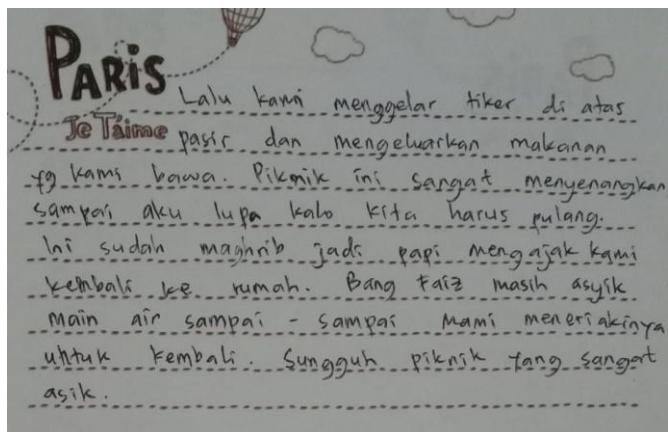 PARIS
Je T'aime
Lalu kami menggelar tiker di atas
pasir dan mengeluarkan makanan
yg kami bawa. Piknik ini sangat menyenangkan
sampai aku lupa kalo kita harus pulang.
Ini sudah maghrib jadi papi mengajak kami
kembali ke rumah. Bang Faiz masih asyik
main air sampai - sampai Mami meneriakinya
untuk kembali. Sungguh piknik yang sangat
asik.